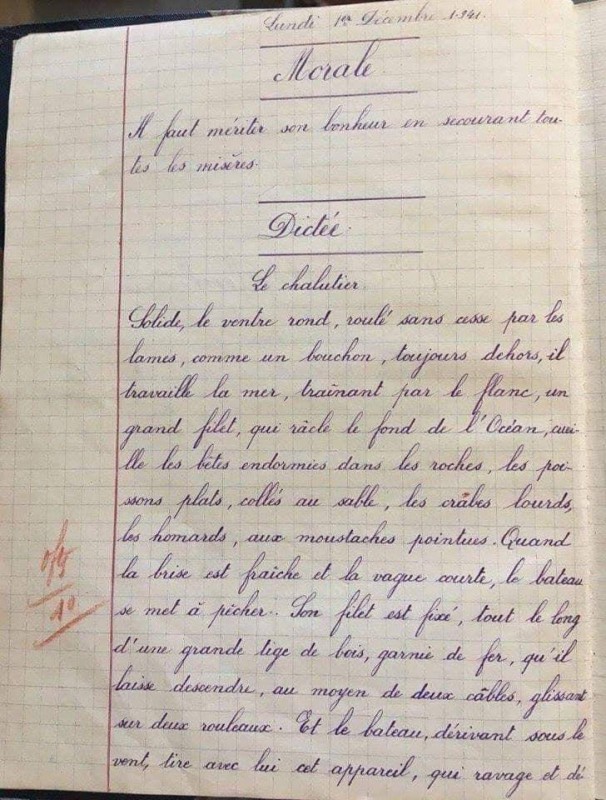 Lundi 1er Décembre 1941.
Morale
Il faut mériter son bonheur en secourant tou-
tes les misères.
Dictée.
Le chalutier.
Solide, le ventre rond, roulé sans cesse par les
lames, comme un bouchon, toujours dehors, il
travaille la mer, traînant par le flanc, un
grand filet, qui râcle le fond de l'Océan, cuei-
lle les bêtes endormies dans les roches, les poi-
ssons plats, collés au sable, les crabes lourds,
les homards, aux moustaches pointues. Quand
la brise est fraîche et la vague courte, le bateau
se met à pêcher. Son filet est fixé, tout le long
d'une grande tige de bois, garnie de fer, qu'il
laisse descendre, au moyen de deux câbles, glissant
sur deux rouleaux. Et le bateau, dérivant sous le
vent, tire avec lui cet appareil, qui ravage et dé
10